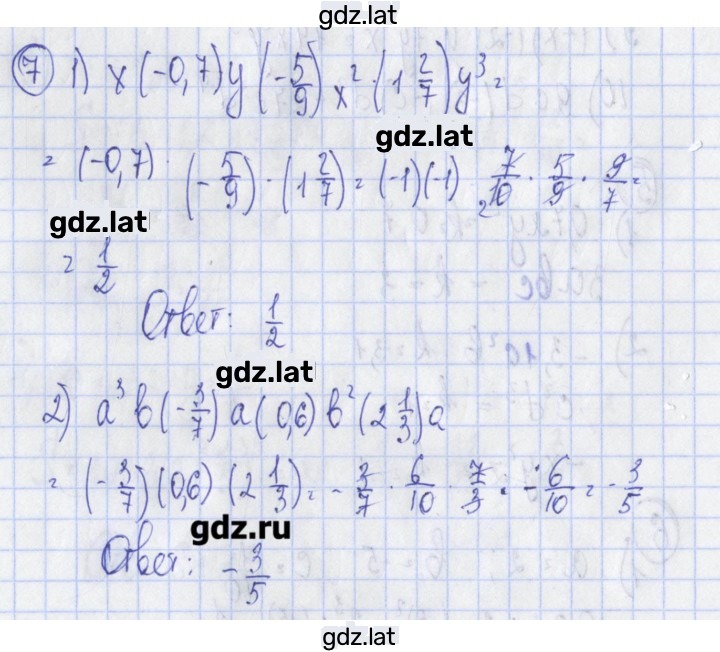 gdz.lat
7 1) x(-0,7)y(-5/9)x²·(1 2/7)y³=
gdz.lat
= (-0,7)·(-5/9)·(1 2/7)=(-1)(-1) 7/10·5/9·9/7=
2
gdz.lat
= 1/2
Ответ: 1/2
gdz.lat
2) a³b(-3/7)a(0,6)b²(2 1/3)a
=(-3/7)(0,6)(2 1/3)=-3/7·6/10·7/3=-6/10=-3/5
gdz.ru
Ответ: -3/5
gdz.lat